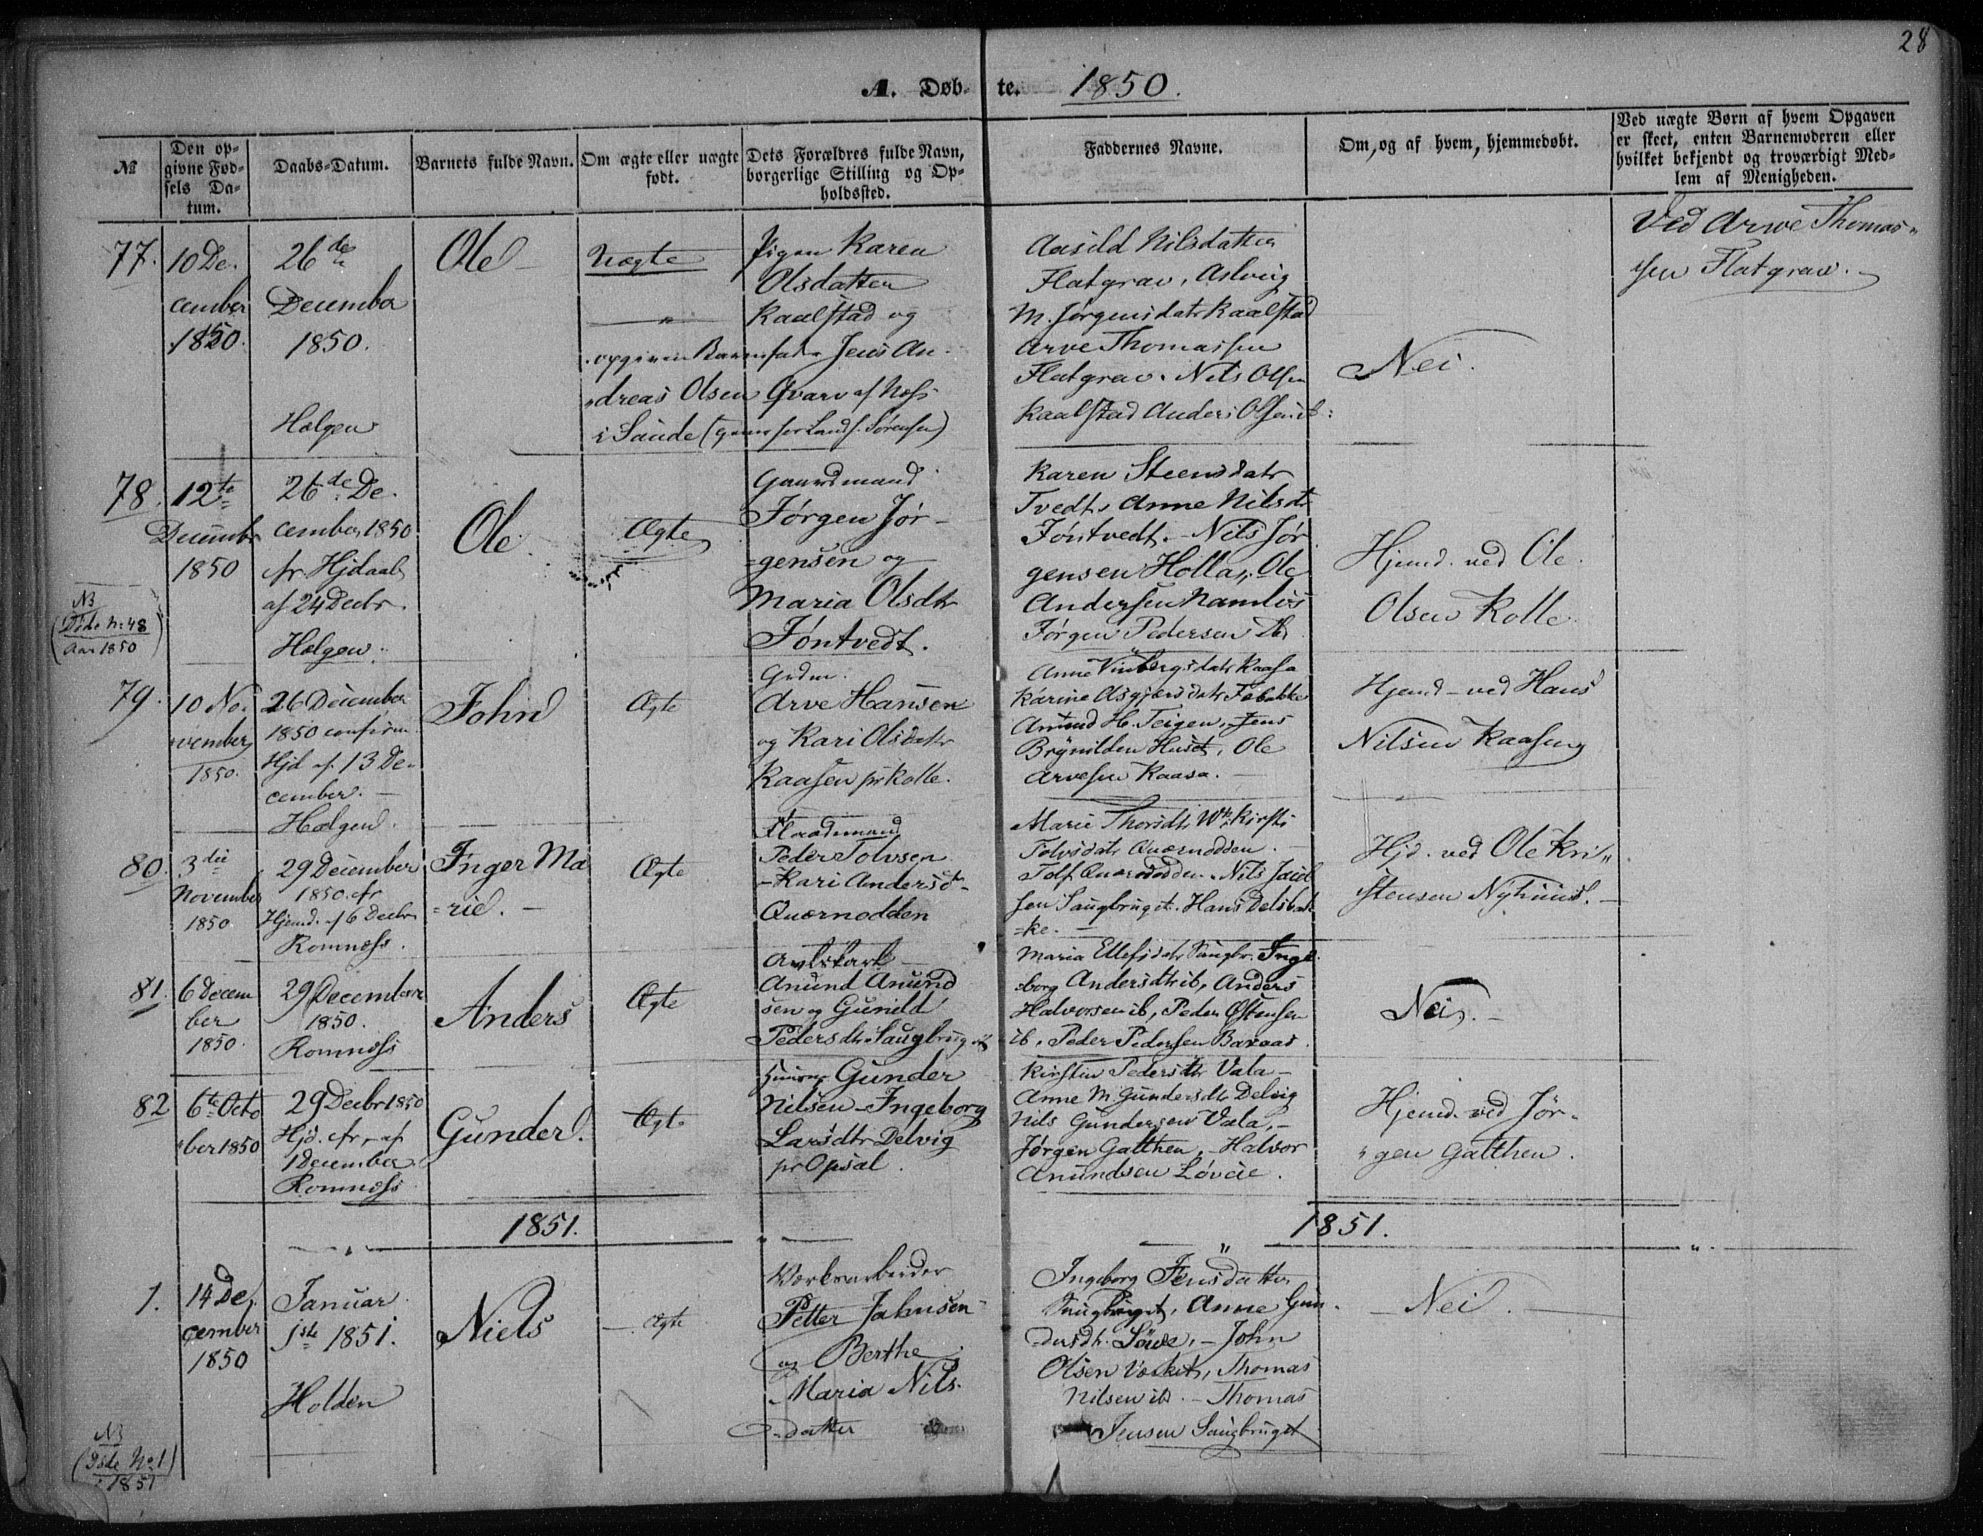 28
A. Døbte. 1850.
№
Den opgivne Fødsels Datum.
Daabs-Datum.
Barnets fulde Navn.
Om ægte eller uægte født.
Dets Forældres fulde Navn, borgerlige Stilling og Opholdssted.
Faddernes Navne.
Om, og af hvem, hjemmedøbt.
Ved uægte Børn af hvem Opgaven er skeet, enten Barnemoderen eller hvilket bekjendt og troværdigt Medlem af Menigheden.
77.
10 De-
cember
1850.
26de
December
1850.
Holden
Ole
Uægte
Pigen Karen
Olsdatter
Kaalstad og
opgiven Barnefader Jens An-
dreas Olsen Qvarv af Næs
i Saude
Aasild Nilsdatter
Flatgrav, Aslaug
M. Jørgensdatr Kaalstad
Arve Thomassen
Flatgrav. Nils Olsen
Kaalstad Anders Olsen ib:
Nei.
Ved Arve Thomas-
sen Flatgrav.
78.
12te
Decembr
1850
NB
(Døde No 48
Aar 1850)
26de De-
cember 1850
fr Hjdaab
af 24 Decbr.
Helgen.
Ole.
Ægte
Gaardmand
Jørgen Jør-
gensen og
Maria Olsdtr
Jøntvedt.
Karen Steensdatr
Tvedt, Anne Nilsdtr
Jøntvedt. Nils Jør
gensen Holla, Ole
Andersen Namløs
Jørgen Pedersen ib.
Hjemd. ved Ole
Olsen Kolle.
79.
10 No-
vember
1850.
26 December
1850 confirm
Hjd af 13 De-
cember.
Helgen.
John
Ægte
Grdm.
Arve Hansen
og Kari Olsdatr
Kaasen pr Kolle.
Anne Vinbergsdatr Kaasa
Karine Asgjersdatr
Amund H. Teigen, Jens
Brynildsen Huset, Ole
Arvesen Kaasa.
Hjemd ved Hans
Nilsen Kaasen
80.
3die
November
1850.
29 December
1850. fr
Hjemd. af 6 Decbr
Romnæss.
Inger Ma
rie.
Ægte
Peder Tolvsen
Kari Andersd
Quærnodden
Marie Thorsdtr
Tolvsdatr Quærnodden.
Tolf Quærnodden. Nils Jacob
sen Saugbruget. Hans
ke.
Hjd. ved Ole Kri-
stensen Nyhuus.
81.
6 Decem
ber
1850.
29 December
1850.
Romnæss
Anders
Ægte
Anund Anund
sen og Gunild
Pedersdtr Saugbruget
Maria Ellefsdatr Saugbr. Inge
borg Andersdtr ib, Anders
Halvorsen ib, Peder Østensen
ib, Peder Pedersen
Nei.
82
6te Octo
ber 1850
29 Decbr 1850
Hjd. fr, af
1 December
Romnæss
Gunder.
Ægte
Gunder
Nilsen Ingeborg
Larsdtr Delvig
pr Opsal.
Kirstin Pedersdtr Vala
Anne M Gundersdtr Delvig
Nils Gundersen Vala,
Jørgen Galthen, Halvor
Anundsen Løveie.
Hjemd. ved Jør-
gen Galthen.
1851.
1851.
1.
14 De-
cember
1850
NB
(Døde No 1
1851)
Januar
1ste 1851.
Holden
Niels
Ægte
Værksarbeider
Petter Jahnsen
og Berthe
Maria Nils-
datter
Ingeborg Jensdatter
Saugbruget, Anne Gun-
dersdtr. - John
Olsen Værket, Thomas
Nilsen ib. - Thomas
Jensen Saugbruget
Nei.